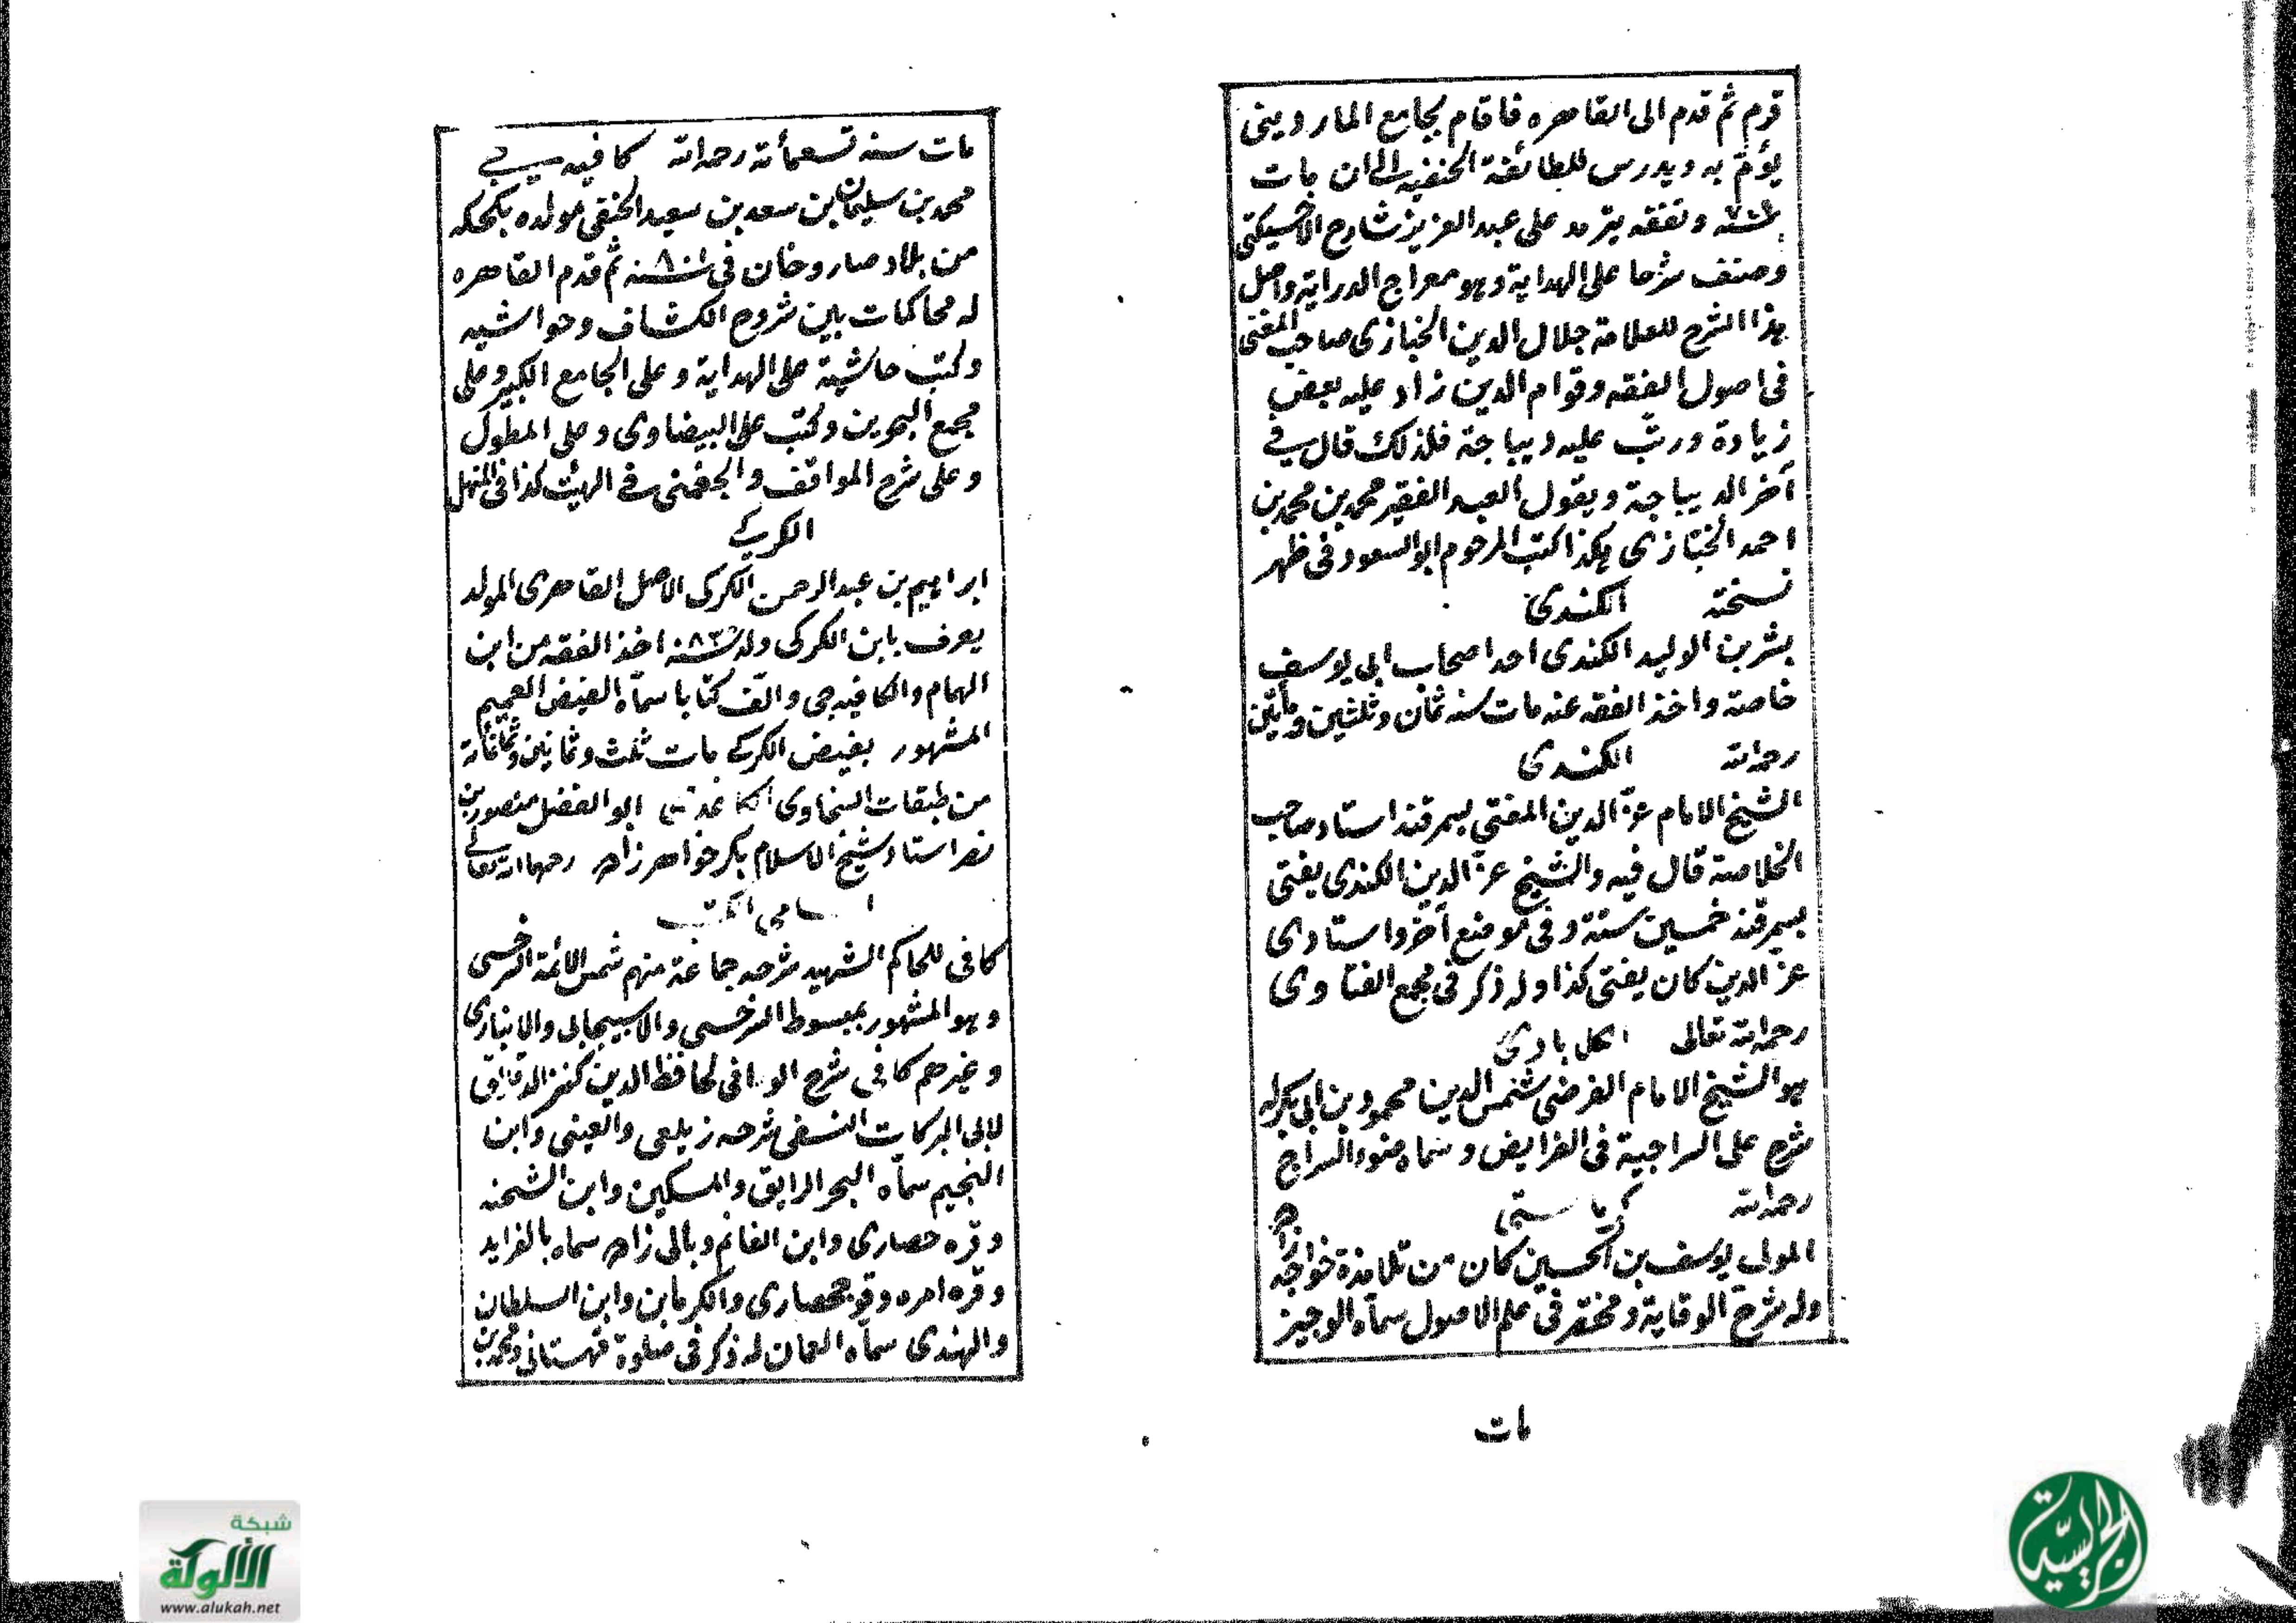 قرم ثم قدم الى القاهره فاقام بجامع الماردينى
يؤم به ويدرس للطائفة الحنفية الى ان مات
وتفقه بترمد على عبد العزيز شارح الاخسيكتى
وصنف شرحا على الهداية وهو معراج الدراية واصل
هذا الشرح للعلامة جلال الدين الخبازى صاحب المغنى
فى اصول الفقه وقوام الدين زاد عليه بعض
زيادة ورتب عليه ديباجة فلذلك قال فى
آخر الديباجة ويقول العبد الفقير محمد بن محمد بن
احمد الخبازى هكذا كتب المرحوم ابو السعود فى ظهر
نسخته الكندى
بشر بن الوليد الكندى احد اصحاب ابى يوسف
خاصة واخذ الفقه عنه مات سنه ثمان وثلثين ومأتين
رحمه الله الكندى
الشيخ الامام عز الدين المفتى بسمرقند استاد صاحب
الخلاصة قال فيه والشيخ عز الدين الكندى يفتى
بسمرقند خمسين سنة وفى موضع آخر واستادى
عز الدين كان يفتى كذا وله ذكر فى مجمع الفتاوى
رحمه الله تعالى الكلابادى
هو الشيخ الامام الفرضى شمس الدين محمود بن ابى بكر له
شرح على السراجية فى الفرايض وسماه ضوء السراج
رحمه الله كرماستى
المولى يوسف بن الحسين كان من تلامذة خواجه زاده
وله شرح الوقاية ومختصر فى علم الاصول سماه الوجيز
مات
مات سنه تسعمائة رحمه الله كافيه جى
محمد بن سليمان بن سعد بن سعيد الحنفى مولده بككجكه
من بلاد صاروخان فى سنه ٨٠١ ثم قدم القاهره
له محاكمات بين شروح الكشاف وحواشيه
وكتب حاشية على الهداية وعلى الجامع الكبير وعلى
مجمع البحرين وكتب على البيضاوى وعلى المطول
وعلى شرح المواقف والجغمنى فى الهيئت كذا فى المنهل
الكركى
ابراهيم بن عبد الرحمن الكركى الاصل القاهرى المولد
يعرف بابن الكركى ولد سنه اخذ الفقه من ابن
الهمام والكافيه جى والف كتابا سماه الفيض العميم
المشهور بفيض الكركى مات ثلث وثمانين وثمانمائة
من طبقات السخاوى الكاغدى ابو الفضل منصور بن
نصر استاد شيخ الاسلام بكر خواهر زاده رحمهما الله تعالى
اسامى الكتب
كافى للحاكم الشهيد شرحه جماعة منهم شمس الائمة السرخسى
وهو المشهور بمبسوط السرخسى والاسبيجابى والانبارى
وغيرهم كافى شرح الوافى لحافظ الدين كنز الدقايق
لابى البركات النسفى شرحه زيلعى والعينى وابن
النجيم سماه البحر الرايق والمسكين وابن الشحنه
وقره حصارى وابن الغانم وبالى زاده سماه بالفرايد
وقره امره وقوجحصارى والكرمانى وابن السلطان
والهندى سماه له ذكر فى صلوة قهستانى ومحمد بن
شبكة
الألوكة
www.alukah.net